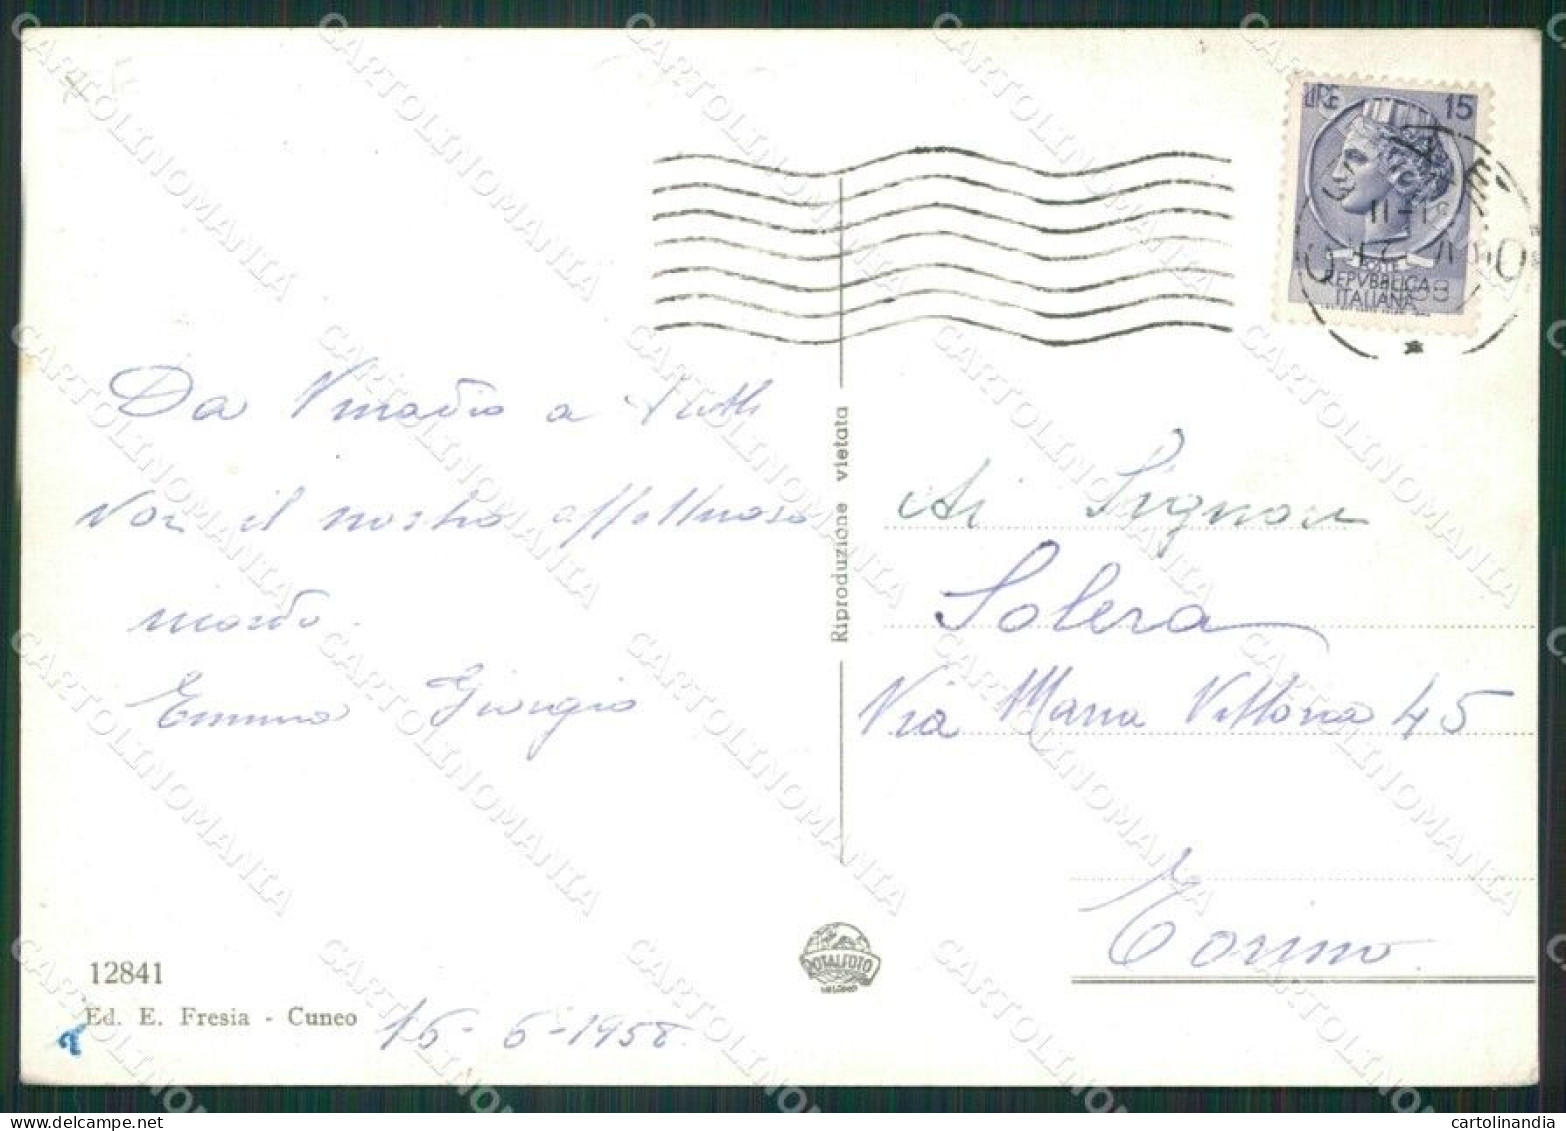 LIRE 15
POSTE
REPVBBLICA
ITALIANA
Da Vinadio a tutti
Voi il nostro affettuoso
ricordo.
Emma Giorgio
Riproduzione vietata
Ai Signori
Solera
Via Maria Vittoria 45
Torino
ROTALFOTO
MILANO
12841
Ed. E. Fresia - Cuneo
15-6-1958
CARTOLINOMANIA
cartolinandia